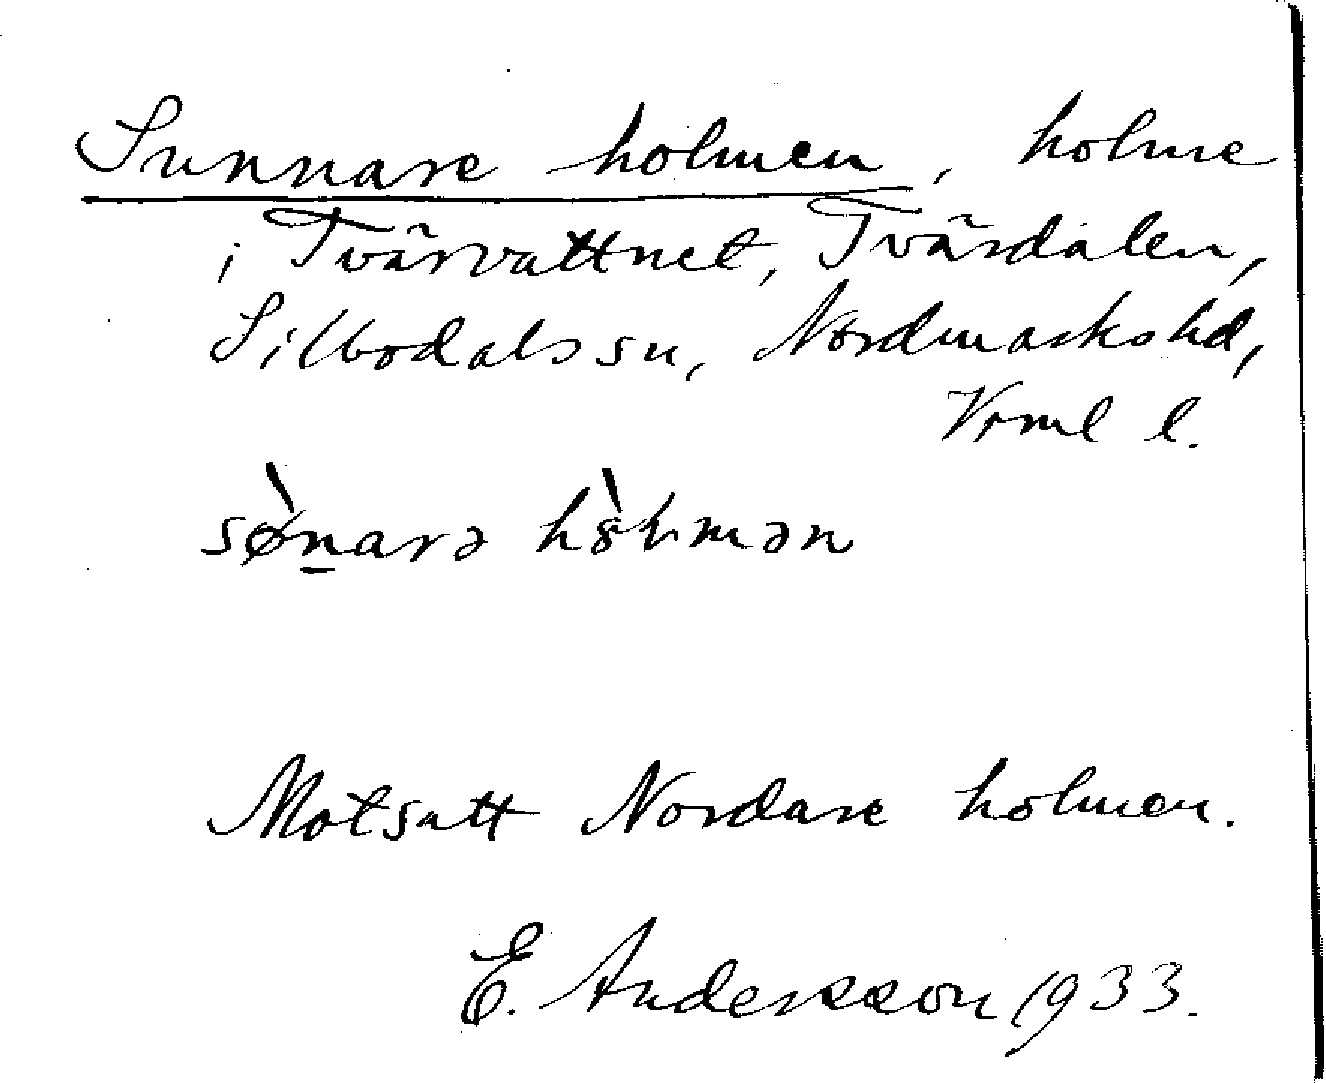 Sunnare holmen, holme
i Tvärvattnet, Tvärdalen,
Silbodals sn, Nordmarks hd,
Vrml l.
Motsatt Nordare holmen.
E. Andersson 1933.